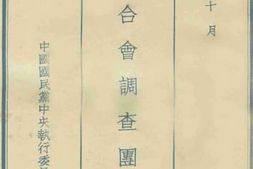 十月
合會調查團
中國國民黨中央執行委員